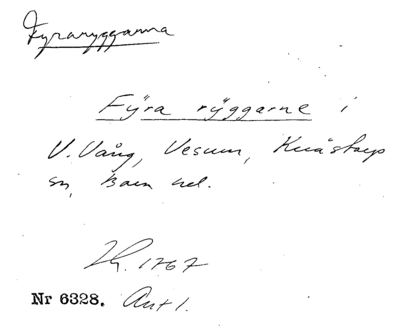 Fyraryggarna
Fÿra rÿggarne i
V. Vång, Vesum, Knästorp
sn, Bara hd.
1767
Nr 6328. Avt 1.